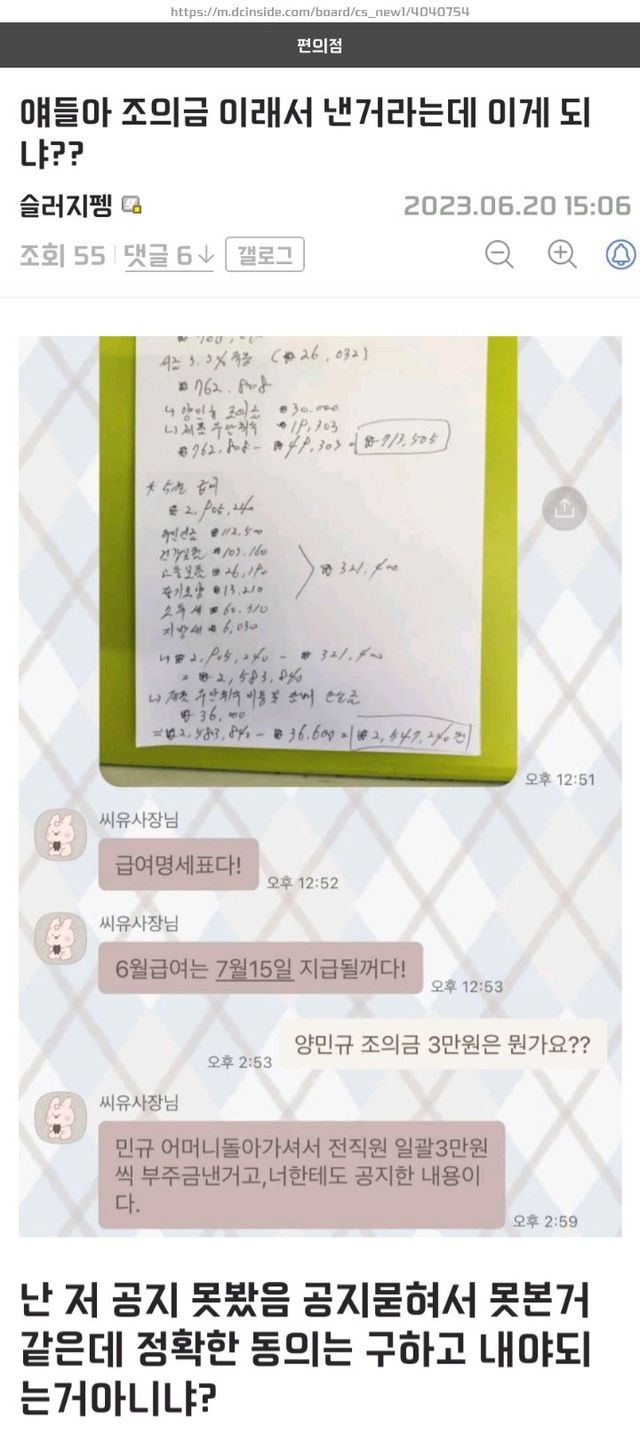 https://m.dcinside.com/board/cs_new1/4040754
편의점
얘들아 조의금 이래서 낸거라는데 이게 되
냐??
슬러지펭
2023.06.20 15:06
조회 55 댓글 6↓ 갤로그
(₩26,032)
₩762.808
ㄴ) 양민규 조의금 ₩30.000
₩19,303
₩762.808 - ₩49,303 = ₩713,505
* 5월 급여
₩2,905,240
국민연금 ₩112,500
건강보험 ₩103,160
고용보험 ₩26,190
장기요양 ₩13,210
소득세 ₩60,310
지방세 ₩6,030
₩321,400
ㄴ ₩2,905,240 - ₩321,400
= ₩2,583,840
₩36,600
= ₩2,583,840 - ₩36.600 = ₩2,547,240원
오후 12:51
씨유사장님
급여명세표다!
오후 12:52
씨유사장님
6월급여는 7월15일 지급될꺼다!
오후 12:53
양민규 조의금 3만원은 뭔가요??
오후 2:53
씨유사장님
민규 어머니돌아가셔서 전직원 일괄3만원
씩 부주금낸거고,너한테도 공지한 내용이
다.
오후 2:59
난 저 공지 못봤음 공지묻혀서 못본거
같은데 정확한 동의는 구하고 내야되
는거아니냐?